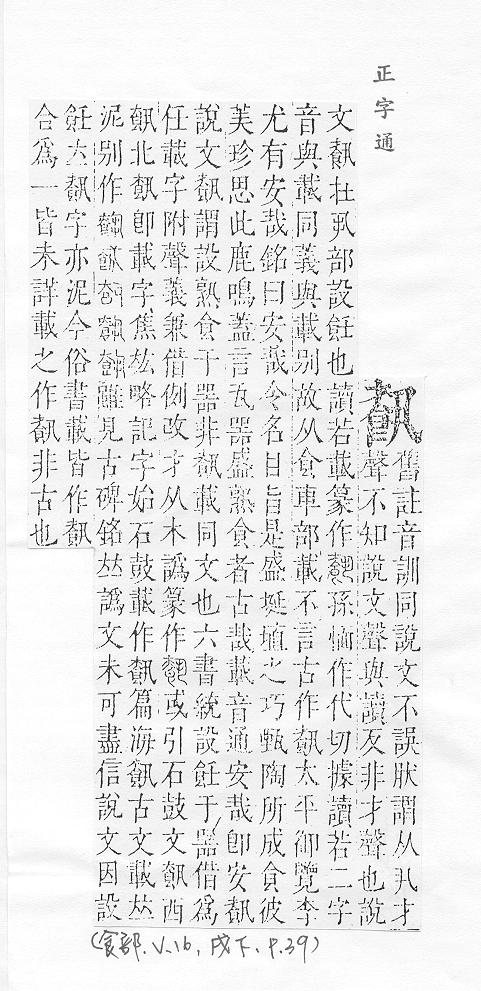 正字通
𩚳舊註音訓同說文不誤狀謂从丮才
聲不知說文聲與讀反非才聲也說
文𩚳在丮部設飪也讀若載篆作孫愐作代切據讀若二字
音與載同義與載別故从食車部載不言古作𩚳太平御覽李
尤有安哉銘曰安哉令名甘旨是盛埏埴之巧甄陶所成食彼
美珍思此鹿鳴蓋言瓦器盛熟食者古哉載音通安哉即安𩚳
說文𩚳謂設熟食于器非𩚳載同文也六書統設飪于器借爲
任載字附聲義兼借例改才从木譌篆作或引石鼓文𩚳西
𩚳北𩚳卽載字焦竑略記字始石鼓載作𩚳篇海𩚳古文載𠀤
泥別作雖見古碑銘𠀤譌文未可盡信說文因設
飪六𩚳字亦泥今俗書載皆作𩚳
合爲一皆未詳載之作𩚳非古也
(食部. V.16, 戌下. P.39)